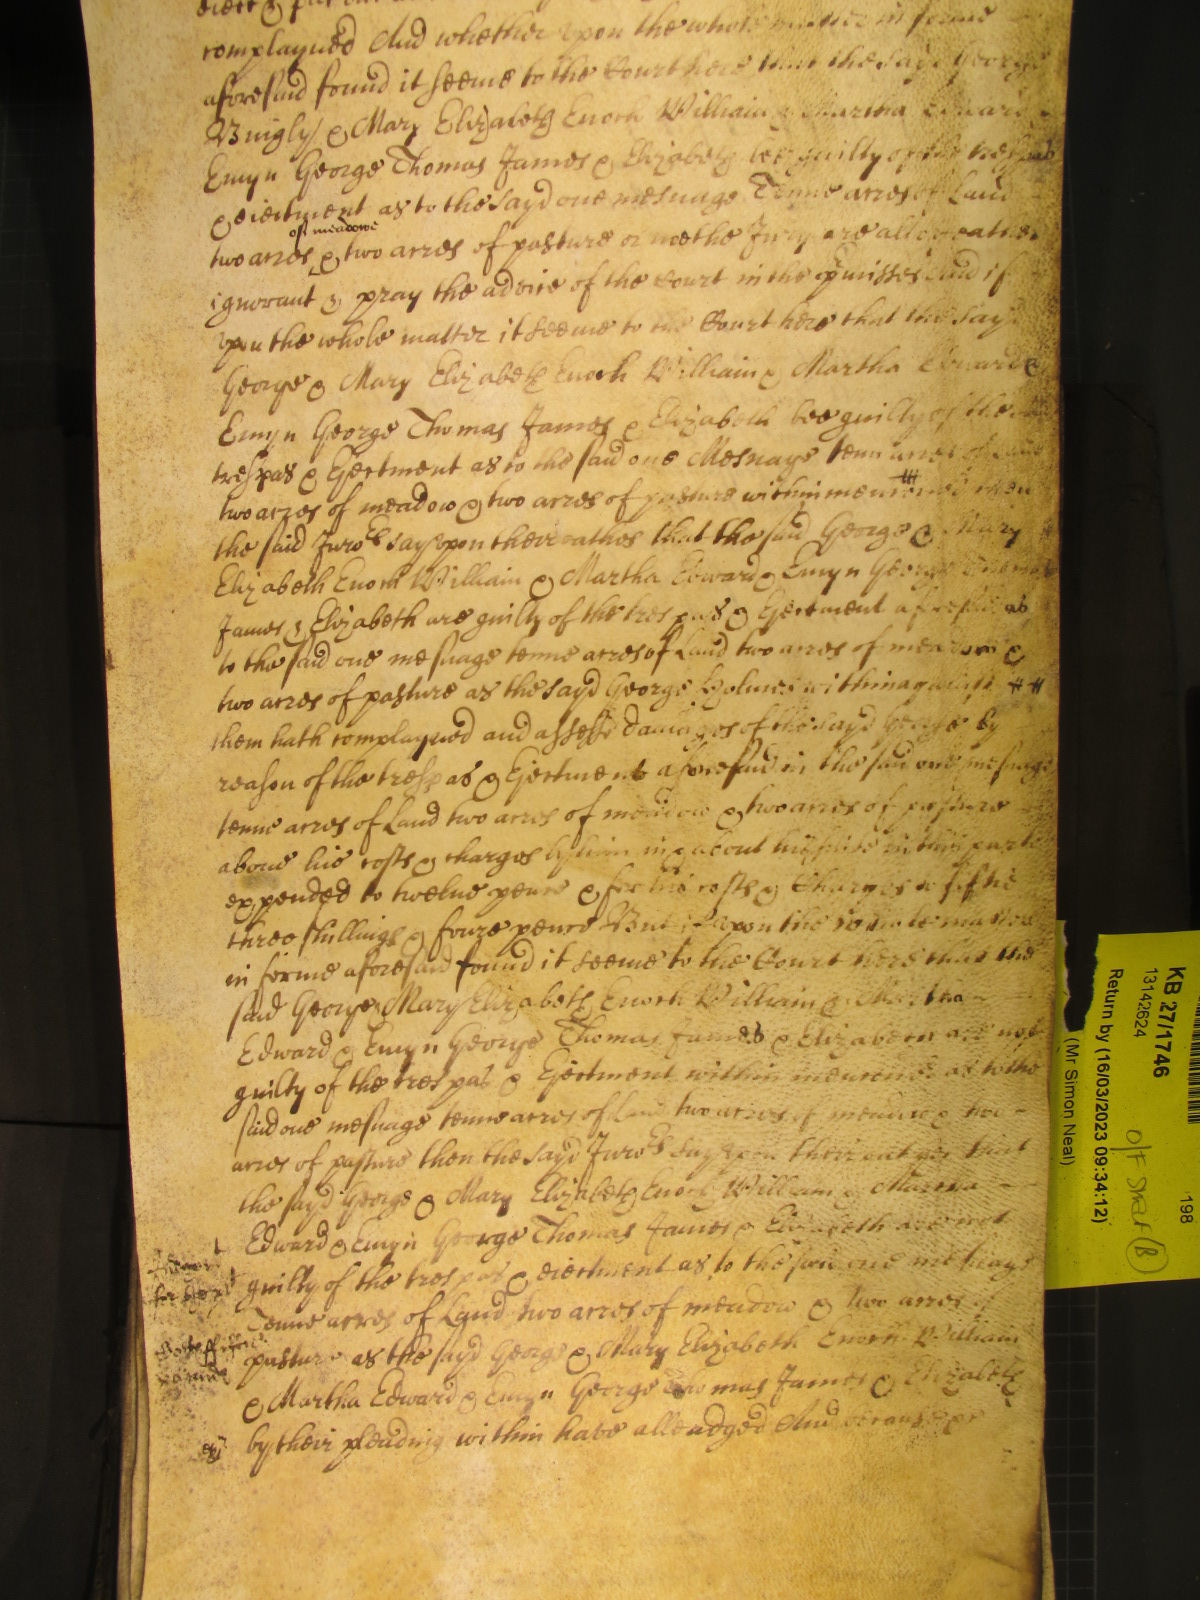 complayned And whether upon the whole matter in forme
aforesaid found it seeme to the Court here that the sayd George
Bingly & Mary Elizabeth Enoch William & Martha Edward
Emyn George Thomas James & Elizabeth bee guilty of the trespas
& eiectment as to the sayd one mesuage Tenne acres of Land
of meadowe
two acres & two acres of pasture or noe the Jury are altogeather
ignorant & pray the advice of the Court in the p'misses And if
upon the whole matter it seeme to the Court here that the sayd
George & Mary Elizabeth Enoch William & Martha Edward &
Emyn George Thomas James & Elizabeth bee guilty of the
trespas & Ejectment as to the said one Mesuage tenn acres of Land
two acres of meadow & two acres of pasture within menconed then
the said Juro's say upon their oathes that the said George & Mary
Elizabeth Enoch William & Martha Edward & Emyn George Thomas
James & Elizabeth are guilty of the trespas & Ejectment aforesaid as
to the said one mesuage tenne acres of Land two acres of meadow &
two acres of pasture as the sayd George Holmes within against
them hath complayned and assesse damages of the sayd George by
reason of the trespas & Ejectment aforesaid in the said one mesuage
tenne acres of Land two acres of meadow & two acres of pasture
above his costs & charges by him in & about his suite in this parte
expended to twelve pence & for his costs & Charges to fiftie
three shillings & foure pence But if upon the whole matter
in forme aforesaid found it seeme to the Court here that the
said George Mary Elizabeth Enoch William & Martha
Edward & Emyn George Thomas James & Elizabeth are not
guilty of the trespas & Ejectment within menconed as to the
said one mesuage tenne acres of Land two acres of meadow & two
acres of pasture then the sayd Juro's say upon their oathes that
the sayd George & Mary Elizabeth Enoch William & Martha
Edward & Emyn George Thomas James & Elizabeth are not
guilty of the trespas & eiectment as to the said one mesuage
Tenne acres of Land two acres of meadow & two acres of
pasture as the sayd George & Mary Elizabeth Enoch William
& Martha Edward & Emyn George Thomas James & Elizabeth
by their pleading within have alleadged And because
KB 27/1746
198
13142624
Return by (16/03/2023 09:34:12)
(Mr Simon Neal)